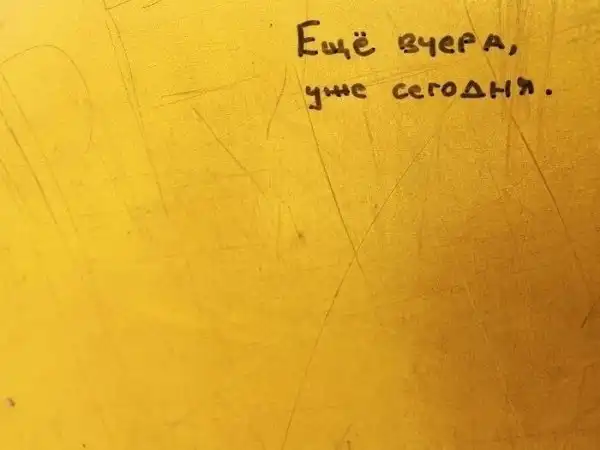 Ещё вчера,
уже сегодня.